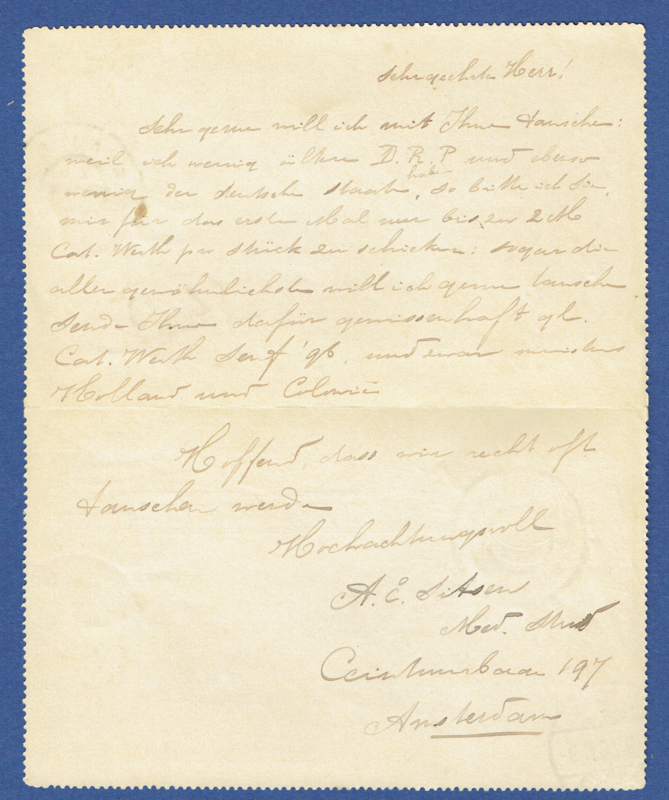 Sehr geehrter Herr!
Sehr gerne will ich mit Ihnen tauschen:
weil ich wenig ältere D. R. P und ebenso
wenig der deutsche Staaten habe, so bitte ich Sie,
mir für das erste Mal nur bis zu 2 M
Cat. Werth pro Stück zu schicken: sogar die
aller gewöhnlichsten will ich gerne tauschen
Sende Ihnen dafür gewissenhaft gl.
Cat. Werth Senf '96, und zwar meistens
Holland und Colonien
Hoffend, dass wir recht oft
tauschen werden
Hochachtungsvoll
A. E. Sitsen
Med. Stud
Ceintuurbaan 197
Amsterdam